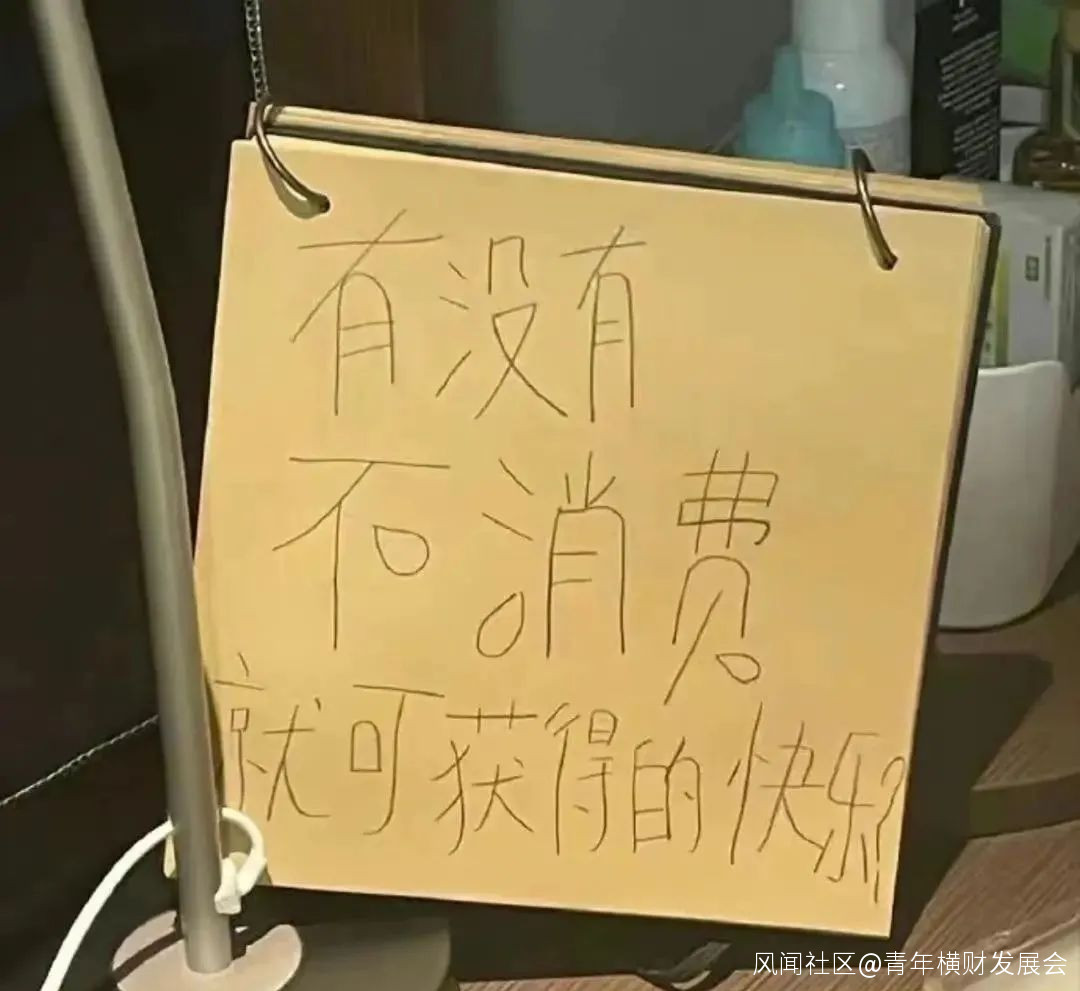 有没有
不消费
就可获得的快乐?
风闻社区@青年横财发展会